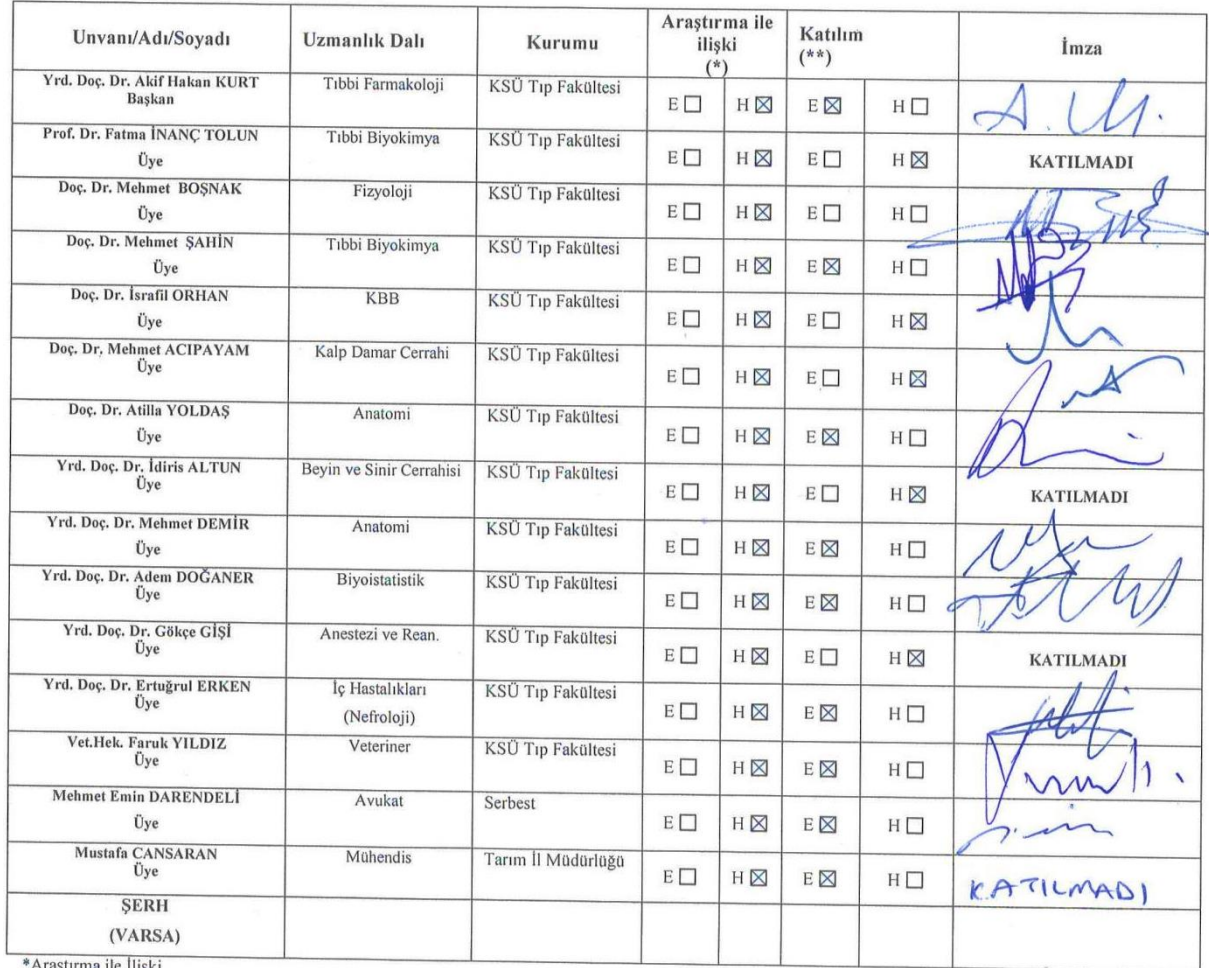 Unvanı/Adı/Soyadı Uzmanlık Dalı Kurumu Araştırma ile ilişki (*) Katılım (**) İmza
Yrd. Doç. Dr. Akif Hakan KURT Tıbbi Farmakoloji KSÜ Tıp Fakültesi
Başkan E☐ H☒ E☒ H☐
Prof. Dr. Fatma İNANÇ TOLUN Tıbbi Biyokimya KSÜ Tıp Fakültesi
Üye E☐ H☒ E☐ H☒ KATILMADI
Doç. Dr. Mehmet BOŞNAK Fizyoloji KSÜ Tıp Fakültesi
Üye E☐ H☒ E☐ H☐
Doç. Dr. Mehmet ŞAHİN Tıbbi Biyokimya KSÜ Tıp Fakültesi
Üye E☐ H☒ E☒ H☐
Doç. Dr. İsrafil ORHAN KBB KSÜ Tıp Fakültesi
Üye E☐ H☒ E☐ H☒
Doç. Dr. Mehmet ACIPAYAM Kalp Damar Cerrahi KSÜ Tıp Fakültesi
Üye E☐ H☒ E☐ H☒
Doç. Dr. Atilla YOLDAŞ Anatomi KSÜ Tıp Fakültesi
Üye E☐ H☒ E☒ H☐
Yrd. Doç. Dr. İdiris ALTUN Beyin ve Sinir Cerrahisi KSÜ Tıp Fakültesi
Üye E☐ H☒ E☐ H☒ KATILMADI
Yrd. Doç. Dr. Mehmet DEMİR Anatomi KSÜ Tıp Fakültesi
Üye E☐ H☒ E☒ H☐
Yrd. Doç. Dr. Adem DOĞANER Biyoistatistik KSÜ Tıp Fakültesi
Üye E☐ H☒ E☒ H☐
Yrd. Doç. Dr. Gökçe GİŞİ Anestezi ve Rean. KSÜ Tıp Fakültesi
Üye E☐ H☒ E☐ H☒ KATILMADI
Yrd. Doç. Dr. Ertuğrul ERKEN İç Hastalıkları KSÜ Tıp Fakültesi
Üye (Nefroloji) E☐ H☒ E☒ H☐
Vet.Hek. Faruk YILDIZ Veteriner KSÜ Tıp Fakültesi
Üye E☐ H☒ E☒ H☐
Mehmet Emin DARENDELİ Avukat Serbest
Üye E☐ H☒ E☒ H☐
Mustafa CANSARAN Mühendis Tarım İl Müdürlüğü
Üye E☐ H☒ E☒ H☐ KATILMADI
ŞERH
(VARSA)
*Araştırma ile İlişki